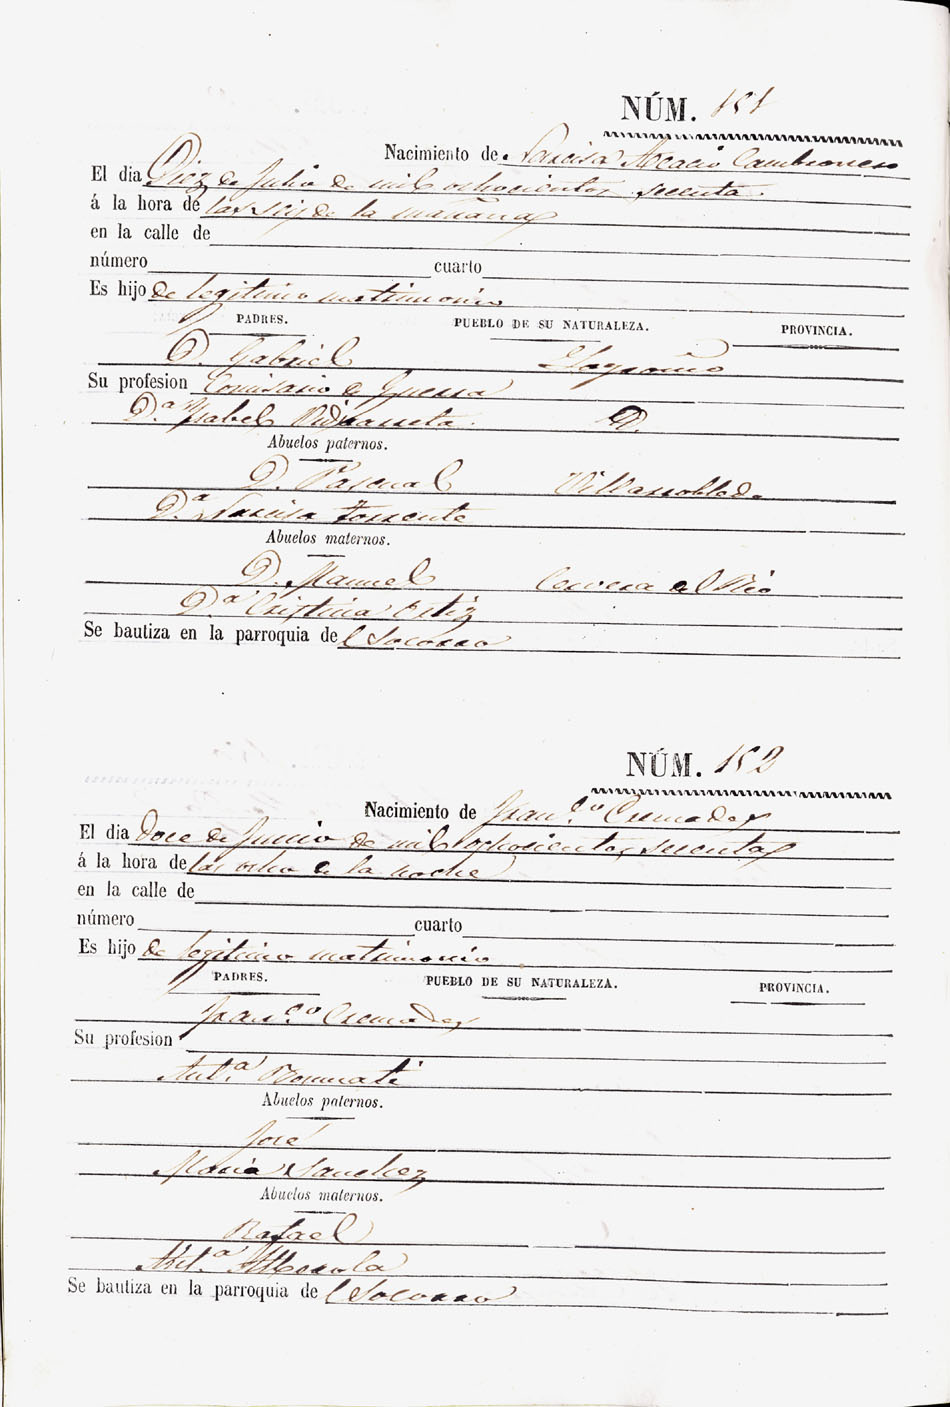 NÚM. 151
Nacimiento de Narcisa Acacio Cambronero
El dia Diez de Julio de mil ochocientos secenta
á la hora de las seis de la mañana
en la calle de
número cuarto
Es hijo de legitimo matrimonio
PADRES. PUEBLO DE SU NATURALEZA. PROVINCIA.
D. Gabriel Logroño
Su profesion Comisario de Guerra
D.ª Ysabel D.
Abuelos paternos.
D. Pascual Villarrobledo
D.ª Narcisa Torrente
Abuelos maternos.
D. Manuel Cervera del Rio
D.ª Cristina Ortiz
Se bautiza en la parroquia del Socorro
NÚM. 152
Nacimiento de Fran.co Cremades
El dia doce de Junio de mil ochocientos secenta
á la hora de las ocho de la noche
en la calle de
número cuarto
Es hijo de legitimo matrimonio
PADRES. PUEBLO DE SU NATURALEZA. PROVINCIA.
Fran.co Cremades
Su profesion
Ant.ª
Abuelos paternos.
José
Maria Sanchez
Abuelos maternos.
Rafael
Ant.ª
Se bautiza en la parroquia del Socorro